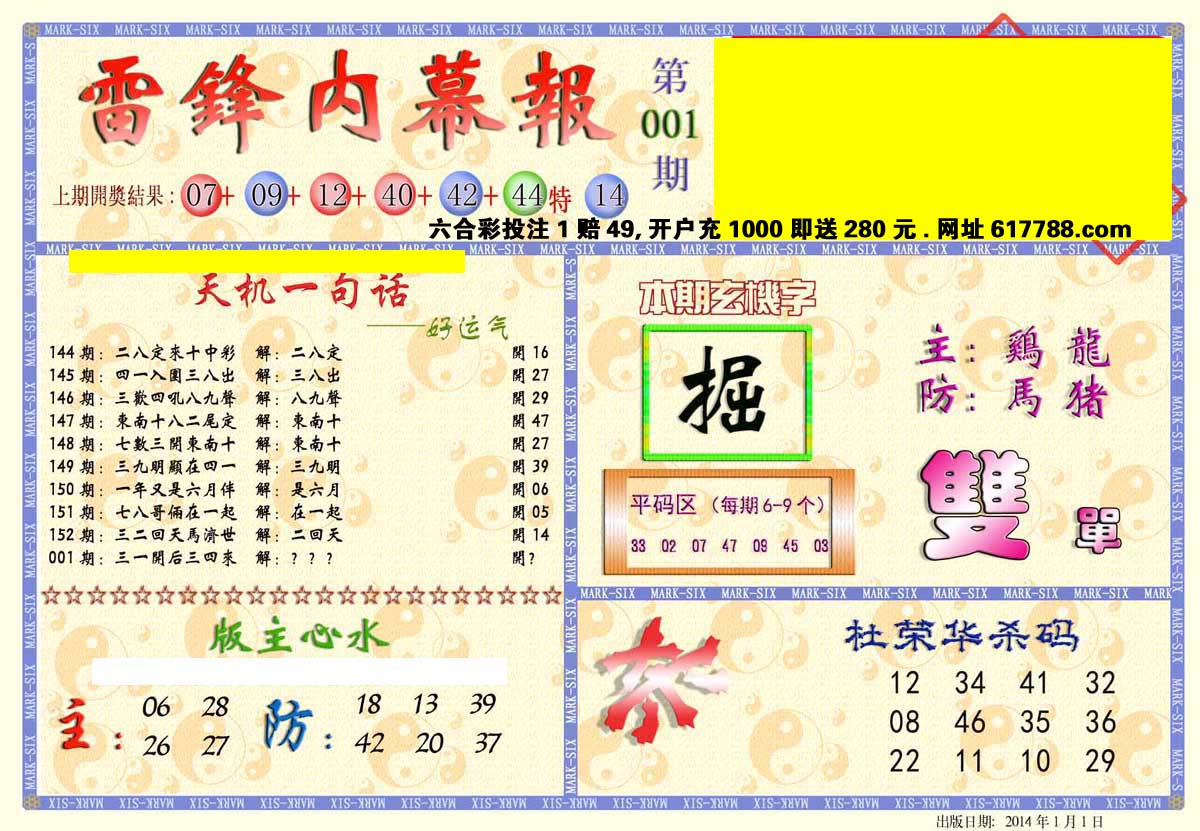 雷鋒内幕報
第
001
期
上期開獎結果：07+ 09+ 12+ 40+ 42+ 44特 14
六合彩投注1赔49,开户充1000即送280元.网址617788.com
天机一句话
——好运气
144期：二八定來十中彩 解：二八定 開16
145期：四一入圍三八出 解：三八出 開27
146期：三歡四吼八九聲 解：八九聲 開29
147期：東南十八二尾定 解：東南十 開47
148期：七數三開東南十 解：東南十 開27
149期：三九明顯在四一 解：三九明 開39
150期：一年又是六月伴 解：是六月 開06
151期：七八哥倆在一起 解：在一起 開05
152期：三二回天馬濟世 解：二回天 開14
001期：三一開后三四來 解：? ? ? 開?
☆☆☆☆☆☆☆☆☆☆☆☆☆☆☆☆☆☆☆☆☆☆☆
版主心水
主：
06 28
26 27
防：
18 13 39
42 20 37
本期玄機字
掘
平码区（每期6-9个）
33 02 07 47 09 45 03
主：鷄 龍
防：馬 猪
雙 單
杀
杜荣华杀码
12 34 41 32
08 46 35 36
22 11 10 29
MARK-SIX
出版日期: 2014年1月1日